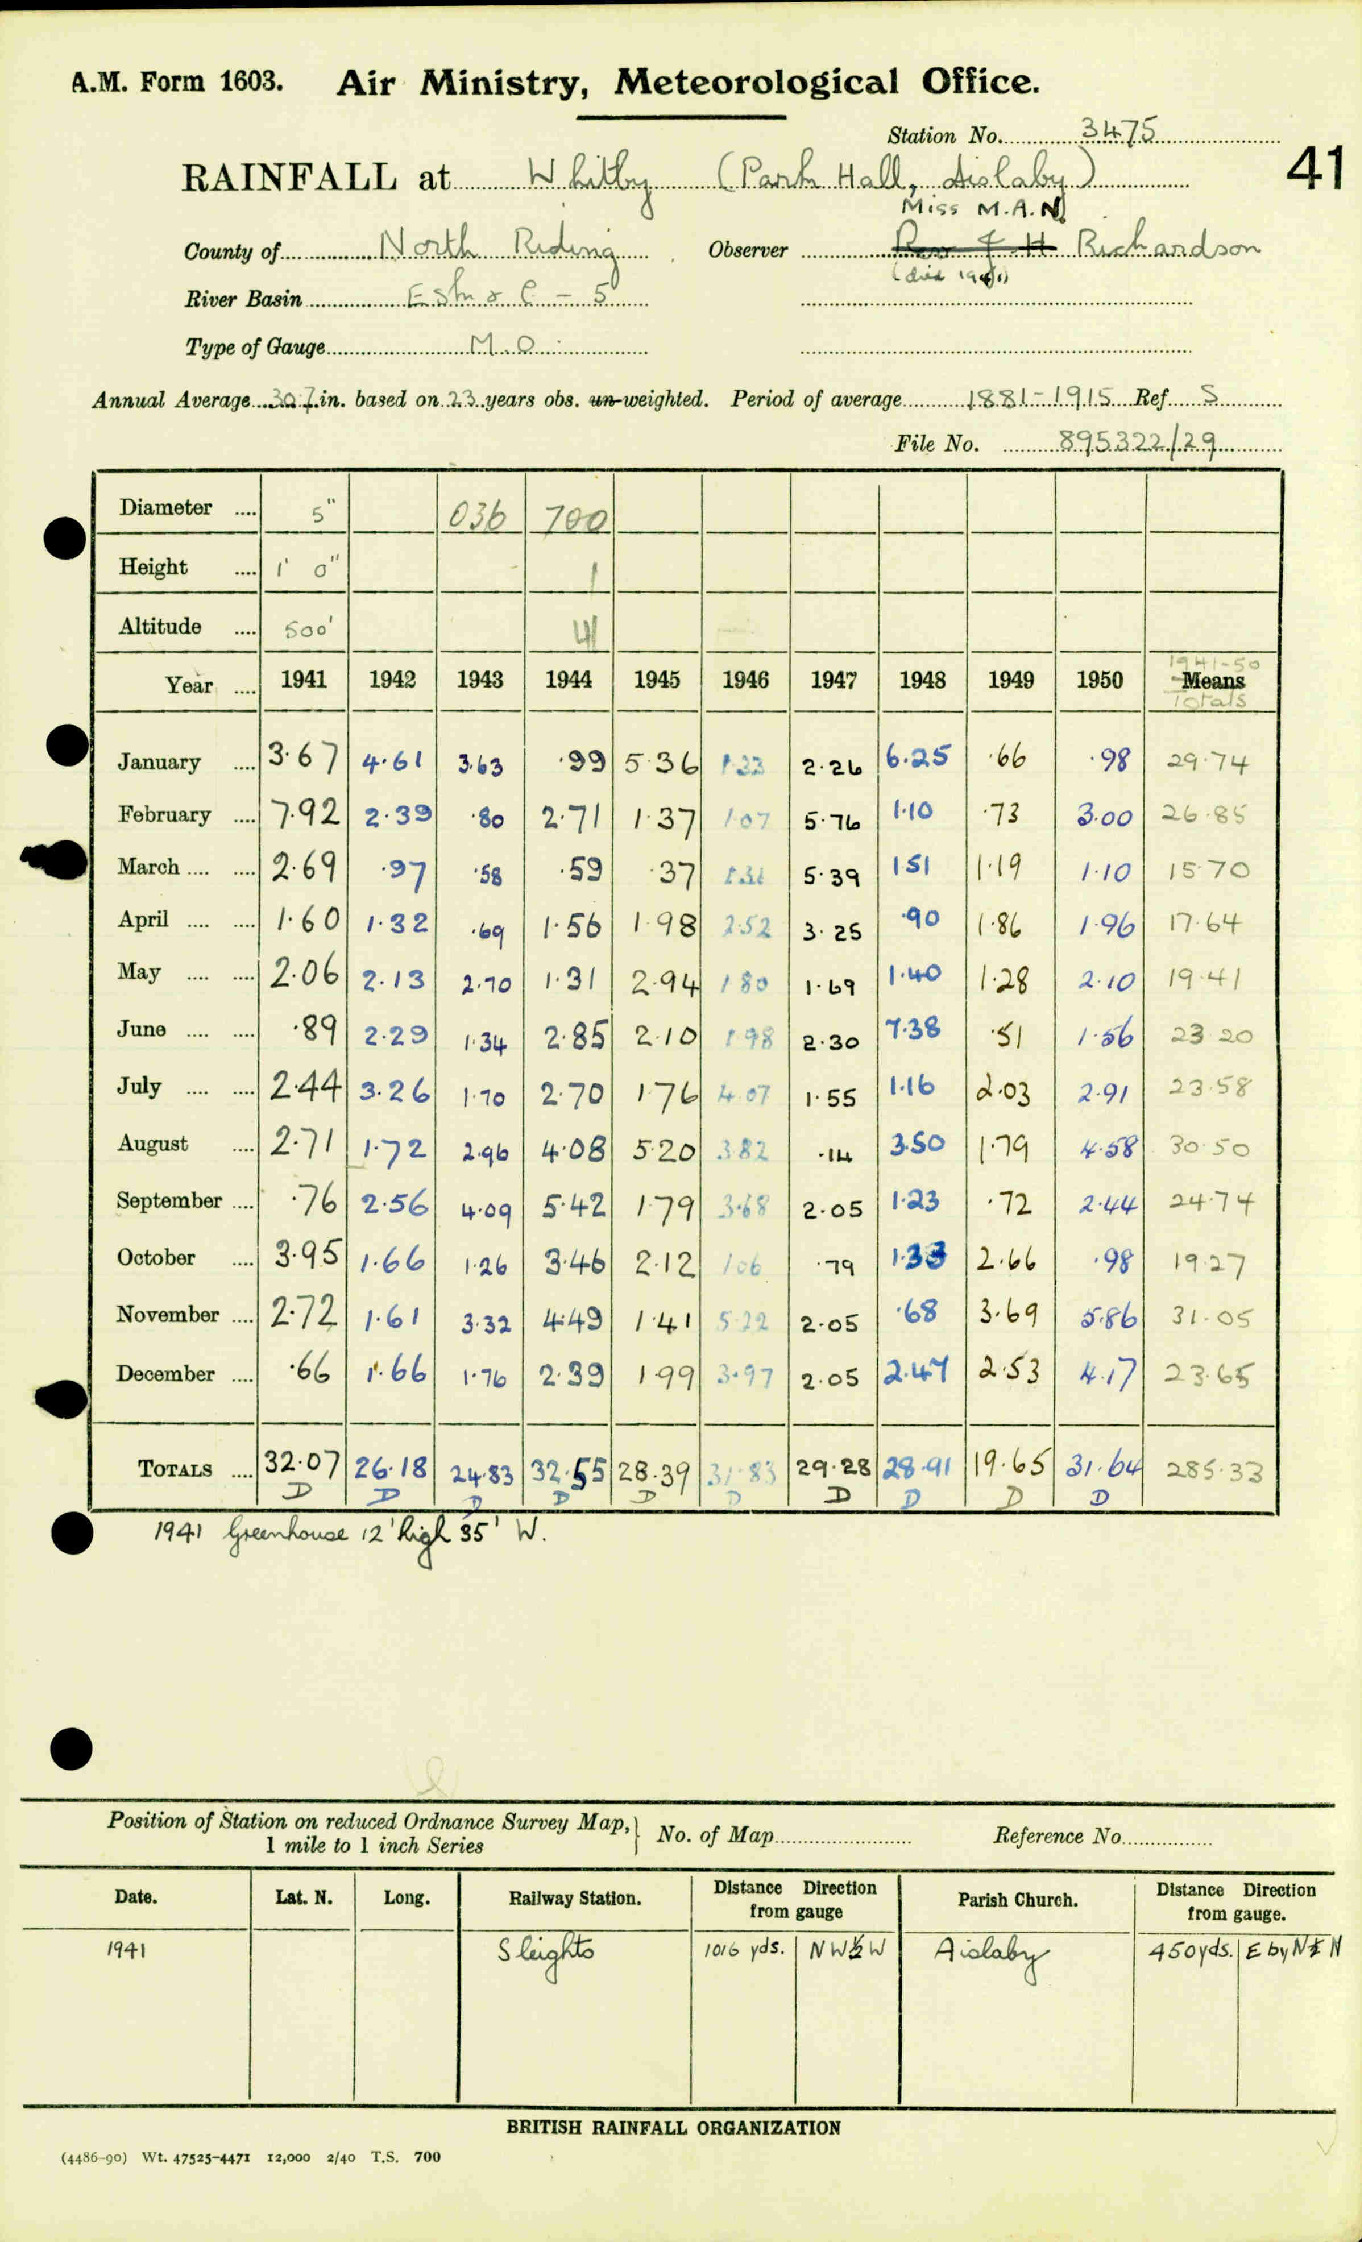 A.M. Form 1603. Air Ministry, Meteorological Office.
Station No. 3475
41
RAINFALL at Whitby (Park Hall, Aislaby)
Miss M.A.N.
County of North Riding Observer Rev J H Richardson
(died 1941)
River Basin Esk & C - 5
Type of Gauge M.O.
Annual Average 30.7 in. based on 23 years obs. un-weighted. Period of average 1881-1915 Ref S
File No. 895322/29
Diameter .... 5" 036 700
Height .... 1' 0" 1
Altitude .... 500' 41
1941-50
Year .... 1941 1942 1943 1944 1945 1946 1947 1948 1949 1950 Means
Totals
January .... 3.67 4.61 3.63 .99 5.36 1.33 2.26 6.25 .66 .98 29.74
February .... 7.92 2.39 .80 2.71 1.37 1.07 5.76 1.10 .73 3.00 26.85
March .... .... 2.69 .97 .58 .59 .37 1.31 5.39 1.51 1.19 1.10 15.70
April .... .... 1.60 1.32 .69 1.56 1.98 2.52 3.25 .90 1.86 1.96 17.64
May .... .... 2.06 2.13 2.70 1.31 2.94 1.80 1.69 1.40 1.28 2.10 19.41
June .... .... .89 2.29 1.34 2.85 2.10 1.98 2.30 7.38 .51 1.56 23.20
July .... .... 2.44 3.26 1.70 2.70 1.76 4.07 1.55 1.16 2.03 2.91 23.58
August .... 2.71 1.72 2.96 4.08 5.20 3.82 .14 3.50 1.79 4.58 30.50
September .... .76 2.56 4.09 5.42 1.79 3.68 2.05 1.23 .72 2.44 24.74
October .... 3.95 1.66 1.26 3.46 2.12 1.06 .79 1.33 2.66 .98 19.27
November .... 2.72 1.61 3.32 4.49 1.41 5.22 2.05 .68 3.69 5.86 31.05
December .... .66 1.66 1.76 2.39 1.99 3.97 2.05 2.47 2.53 4.17 23.65
TOTALS .... 32.07 26.18 24.83 32.55 28.39 31.83 29.28 28.91 19.65 31.64 285.33
D D D D D D D D D D
1941 Greenhouse 12' high 35' W.
Position of Station on reduced Ordnance Survey Map,} No. of Map Reference No.
1 mile to 1 inch Series
Date. Lat. N. Long. Railway Station. Distance Direction from gauge Parish Church. Distance Direction from gauge.
1941 Sleights 1016 yds. NW½W Aislaby 450 yds. E by N½N
BRITISH RAINFALL ORGANIZATION
(4486-90) Wt. 47525-4471 12,000 2/40 T.S. 700